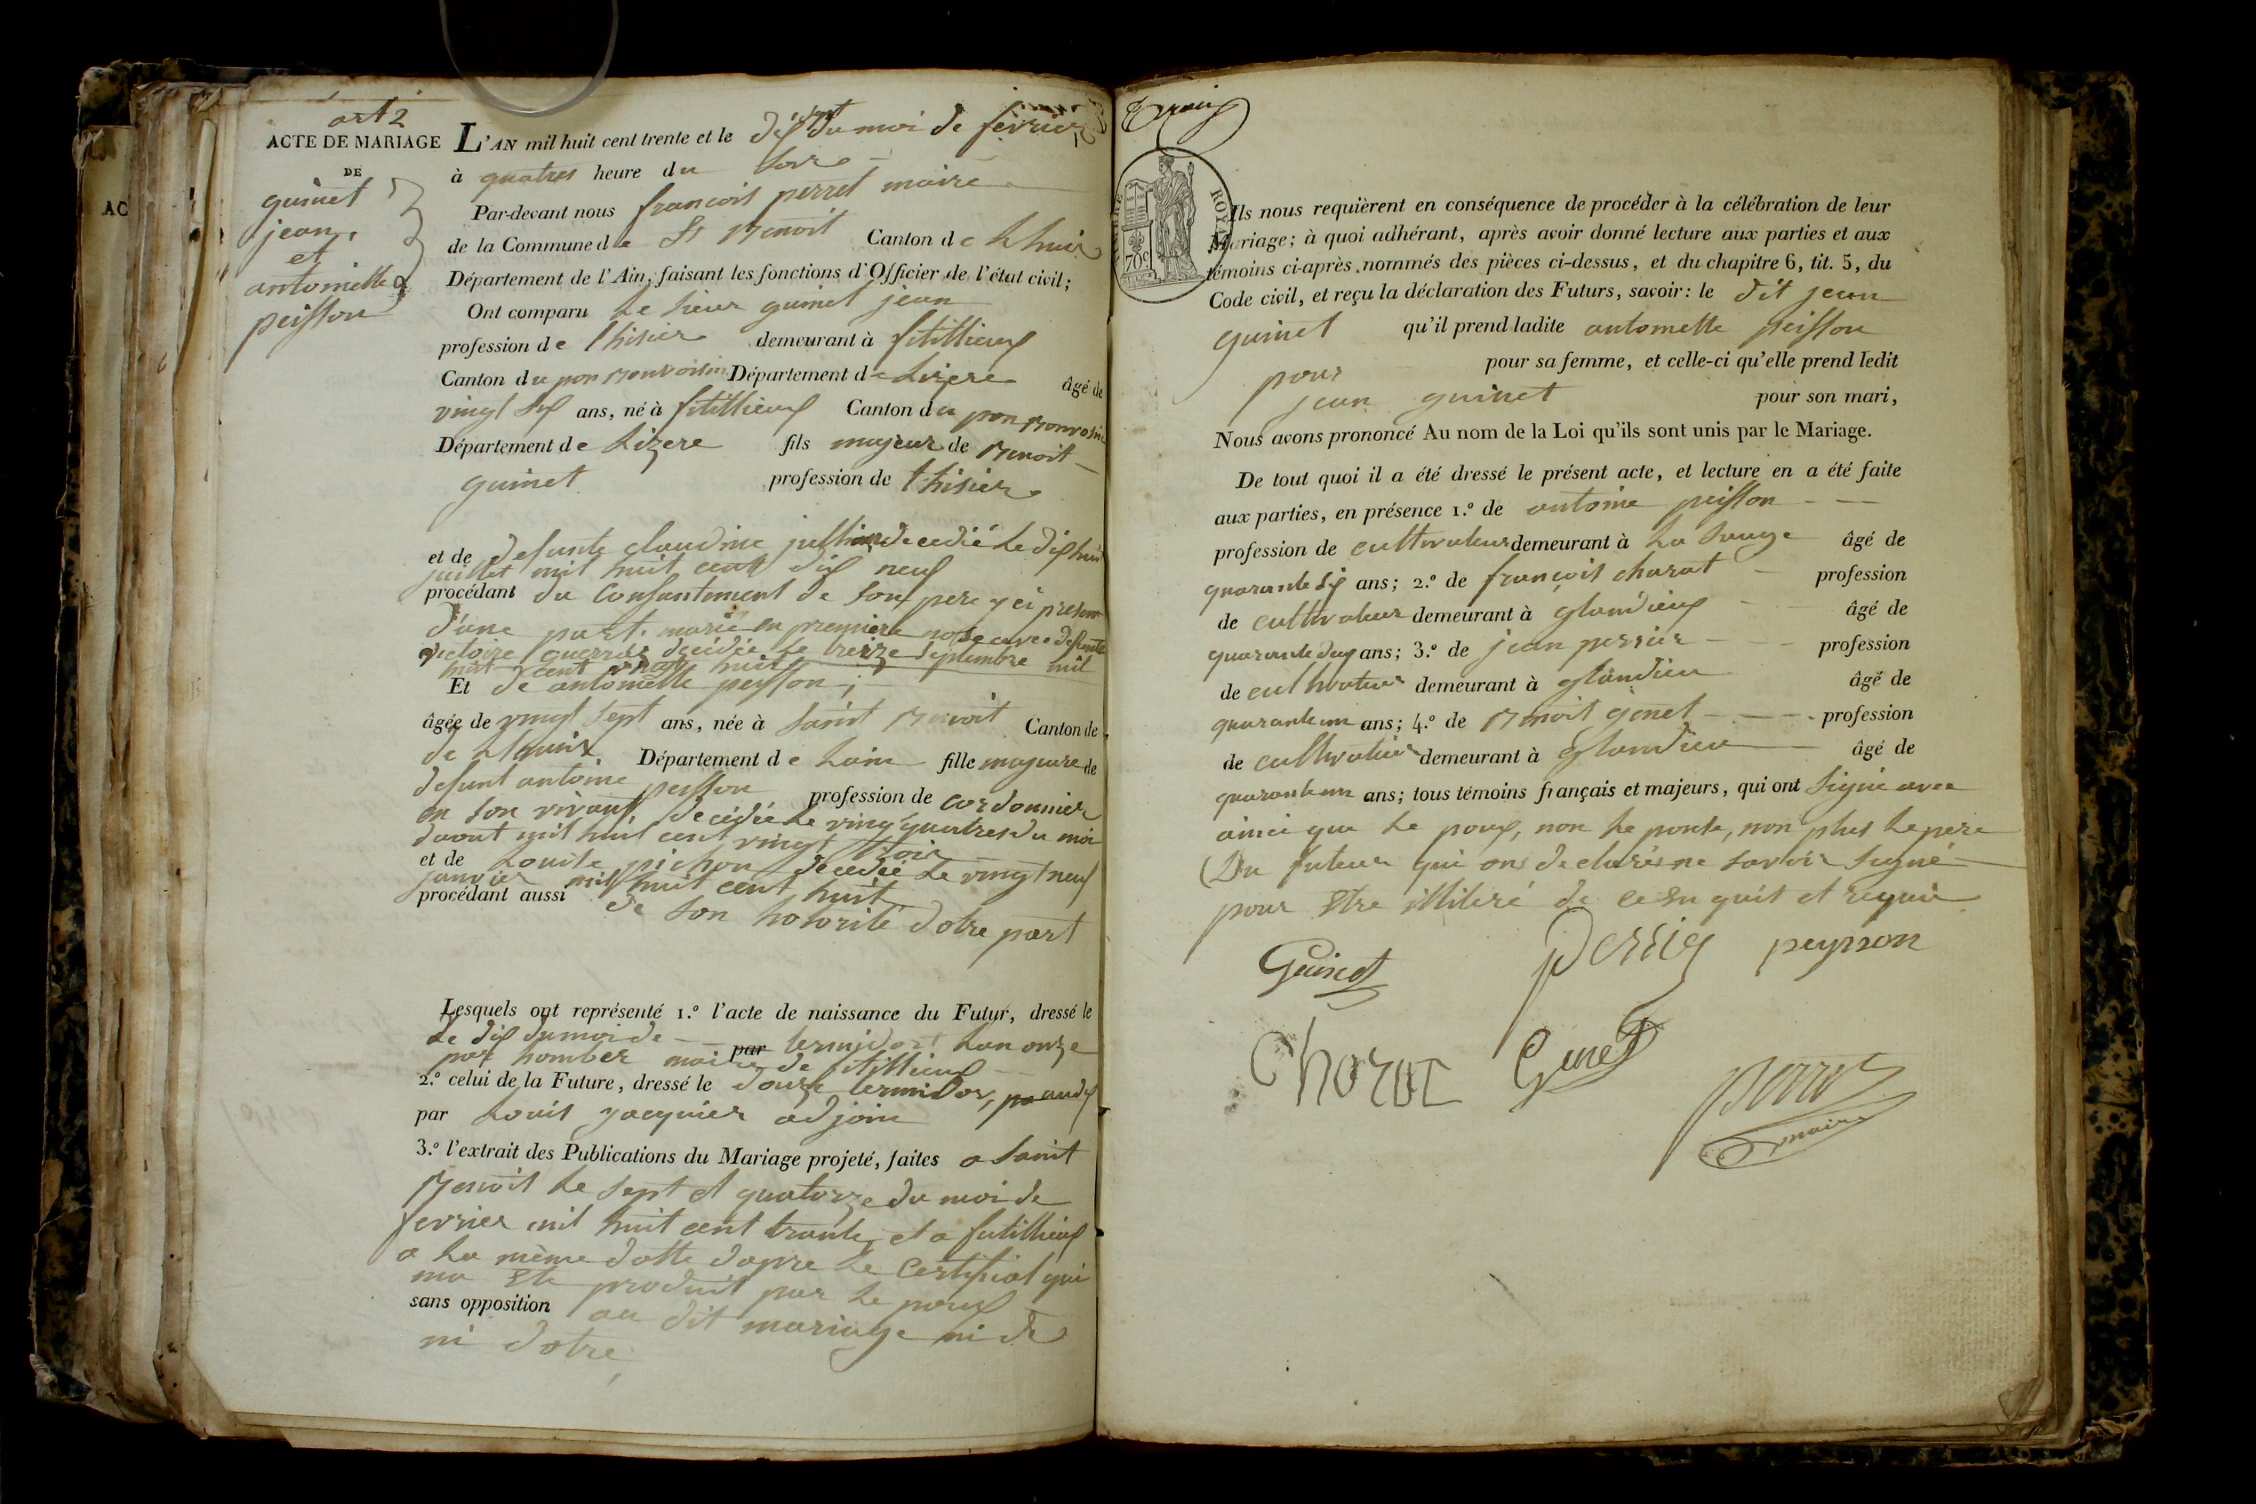 art 2
ACTE DE MARIAGE
DE
guinet
jean,
et
antoinette
peisson
AC
L'AN mil huit cent trente et le dix sept du moi de fevrier
à quatres heure du soire
Par-devant nous francois perret maire
de la Commune de St Benoit Canton de Lhuis
Département de l'Ain, faisant les fonctions d'Officier de l'état civil;
Ont comparu Le sieur guinet jean
profession de thisier demeurant à fitillieux
Canton du pon Bonvoisin Département de Lizere âgé de
vingt six ans, né à fitillieux Canton du pon Bonvoisin
Département de Lizere fils majeur de Benoit
guinet profession de thisier
et de defunte claudine decedié Le dix huit
juillet mil huit cent dix neuf
procédant du Consantement de son pere y ci present
d'une part. marié en premiere nosse avec defunte
victoire decidée Le treize septembre mil
huit cent vingt huit
Et de antoinette peisson;
âgée de vingt sept ans, née à saint Benoit Canton de
de Lhuis Département de Lain fille majeure de
defunt antoine peisson profession de cordonnier
en son vivant decidée Le vingt quatres du moi
daout mil huit cent vingt trois
et de Louise pichon decedée Le vingt neuf
janvier mil huit cent huit
procédant aussi de son hotorité d'otre part
Lesquels ont représenté 1.° l'acte de naissance du Futur, dressé le
Le dix du moi de par termidort Lan onze
par homber maire de fitillieux
2.° celui de la Future, dressé le douze termidor, an dix
par Louis jacquier adjoin
3.° l'extrait des Publications du Mariage projeté, faites a saint
Benoit Le sept et quatorze du moi de
fevrier mil huit cent trante et a fitillieux
a La même datte dapre Le Certificat qui
ma ete produit par Le poux
sans opposition au dit mariage ni de
ni d'otre,
ROYAL
70c
Ils nous requièrent en conséquence de procéder à la célébration de leur
Mariage; à quoi adhérant, après avoir donné lecture aux parties et aux
témoins ci-après nommés des pièces ci-dessus, et du chapitre 6, tit. 5, du
Code civil, et reçu la déclaration des Futurs, savoir: le dit jean
guinet qu'il prend ladite antoinette peisson
pour pour sa femme, et celle-ci qu'elle prend ledit
jean guinet pour son mari,
Nous avons prononcé Au nom de la Loi qu'ils sont unis par le Mariage.
De tout quoi il a été dressé le présent acte, et lecture en a été faite
aux parties, en présence 1.° de antoine peisson
profession de cultivateur demeurant à La Sauge âgé de
quarante six ans; 2.° de françois charat profession
de cultivateur demeurant à glandieux âgé de
quarante deux ans; 3.° de jean perrier profession
de cultivateur demeurant à glandieu âgé de
quarante un ans; 4.° de Benoit genet profession
de cultivateur demeurant à glandieu âgé de
quarante un ans; tous témoins français et majeurs, qui ont signé avec
ainci que Le poux, non La pouse, non plus Le pere
Du futeur qui ons declarés ne savoir signé
pour Etre illiteré de ce enquit et requis
Guinet perrier peysson
Charat Genet
perret
maire